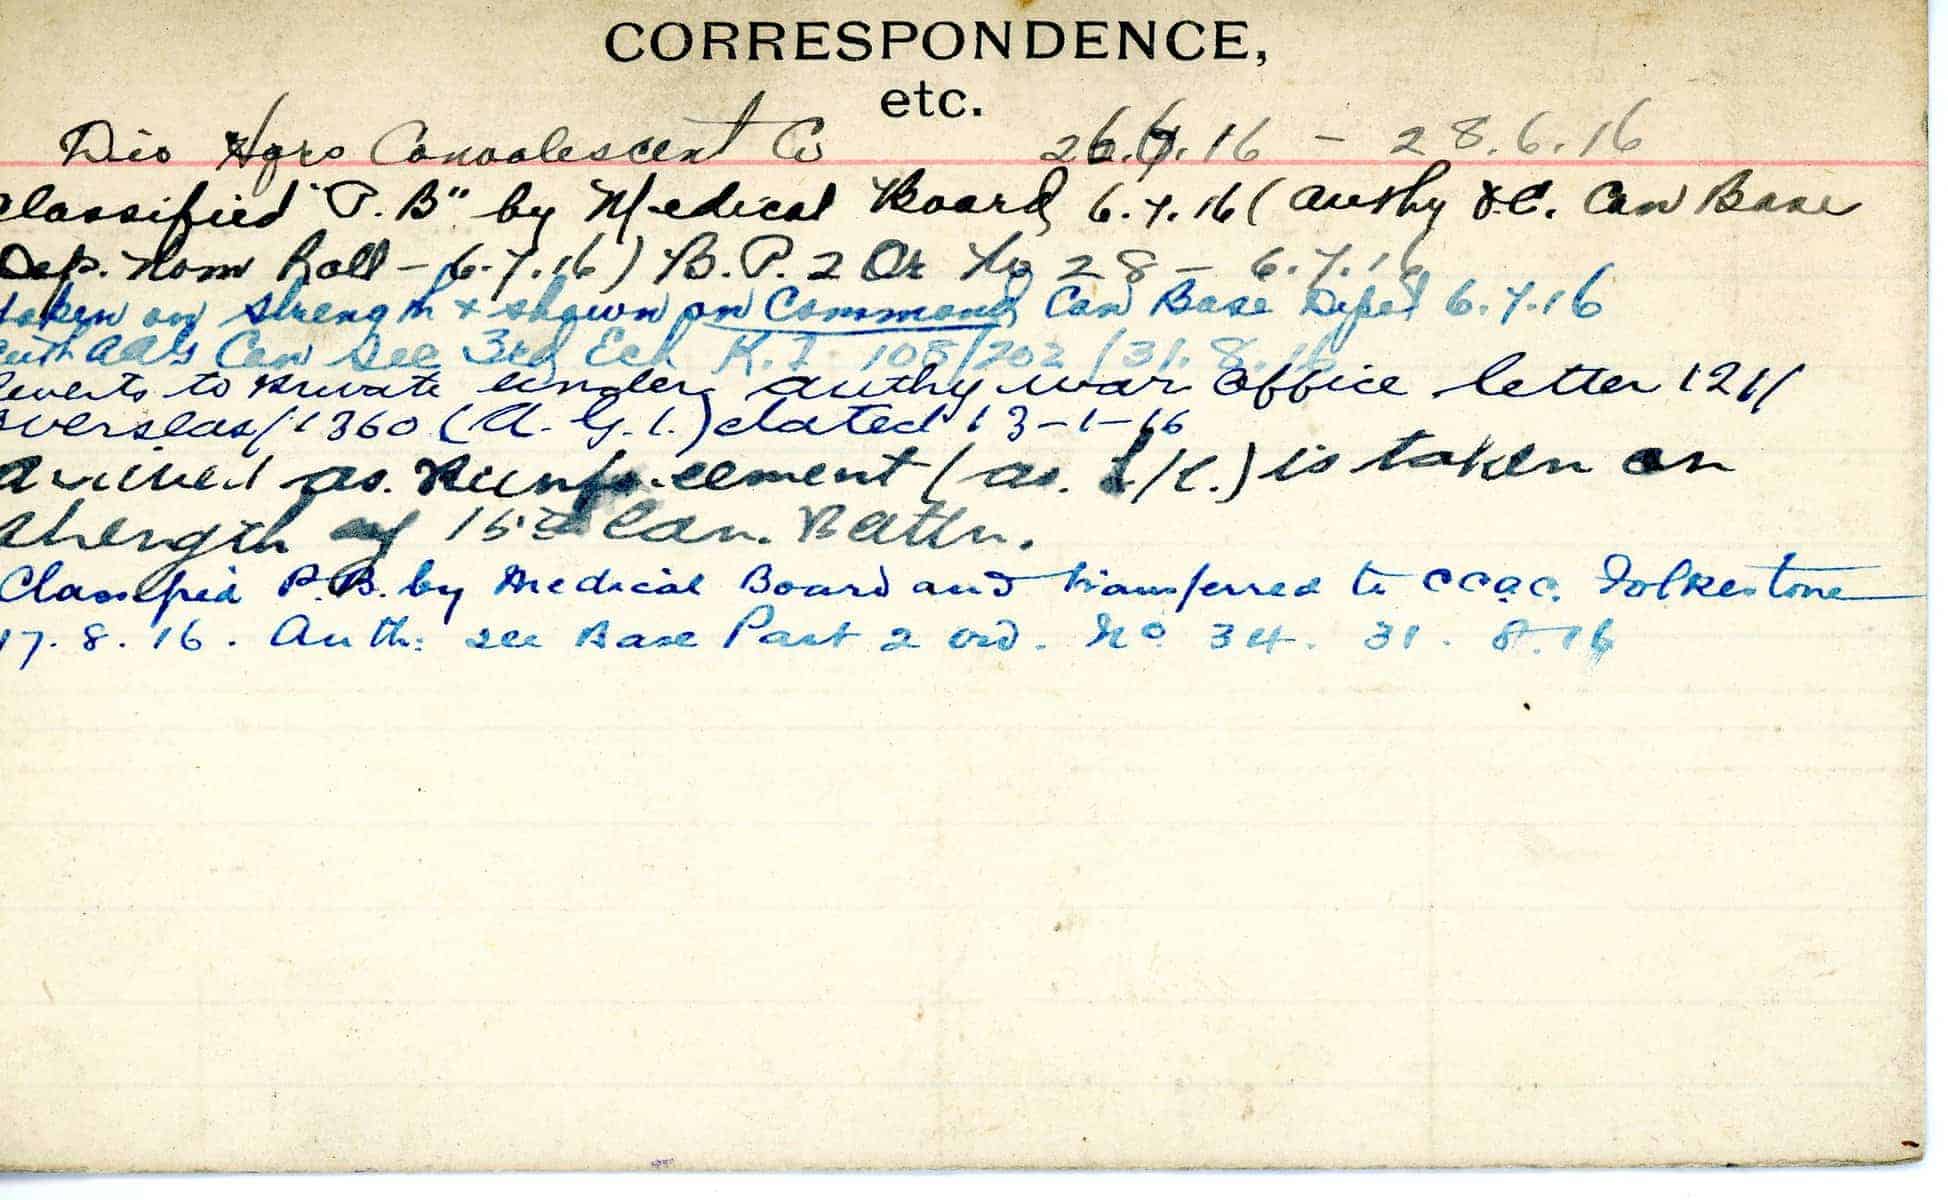 CORRESPONDENCE,
etc.
Div Hqrs Convalescent Co 26.6.16 - 28.6.16
Classified "P.B" by Medical Board 6.7.16 (Authy O.C. Can Base
Dep. Nom Roll - 6.7.16) B.P. 2 Or No 28 - 6.7.16
taken on strength & shown on Command Can Base Depot 6.7.16
Auth AAG Can Sec 3rd Ech K.I. 108/202/31.8.16
Reverts to Private under authy War Office letter 121/
Overseas/1360 (A.G.1.) dated 13-1-16
Arrived as Reinforcement (as. L/C.) is taken on
strength of 15th Can. Battn.
Classified P.B. by Medical Board and transferred to CCAC. Folkestone
17.8.16. Auth: see Base Part 2 ord. No 34. 31.8.16